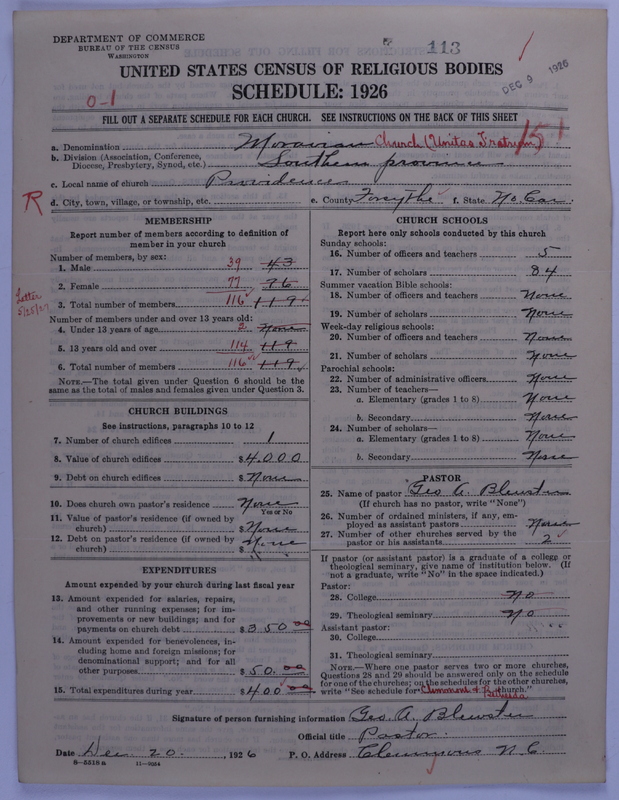 DEPARTMENT OF COMMERCE
BUREAU OF THE CENSUS
WASHINGTON
113
DEC 9 1926
UNITED STATES CENSUS OF RELIGIOUS BODIES
SCHEDULE: 1926
0-1
FILL OUT A SEPARATE SCHEDULE FOR EACH CHURCH. SEE INSTRUCTIONS ON THE BACK OF THIS SHEET
151
a. Denomination Moravian Church (Unitas Fratrum)
b. Division (Association, Conference, Diocese, Presbytery, Synod, etc.) Southern province
c. Local name of church Providence
R
d. City, town, village, or township, etc. e. County Forsythe f. State No. Car.
MEMBERSHIP
Report number of members according to definition of
member in your church
Number of members, by sex:
1. Male 39 43
2. Female 77 76
Letter 5/25/27
3. Total number of members 116 119
Number of members under and over 13 years old:
4. Under 13 years of age 2 None
5. 13 years old and over 114 119
6. Total number of members 116 119
NOTE.—The total given under Question 6 should be
same as the total of males and females given under Question 3.
CHURCH BUILDINGS
See instructions, paragraphs 10 to 12
7. Number of church edifices 1
8. Value of church edifices $4000
9. Debt on church edifices $None
10. Does church own pastor's residence None
Yes or No
11. Value of pastor's residence (if owned by
church) $None
12. Debt on pastor's residence (if owned by
church) $None
EXPENDITURES
Amount expended by your church during last fiscal year
13. Amount expended for salaries, repairs,
and other running expenses; for im-
provements or new buildings; and for
payments on church debt $350 00
14. Amount expended for benevolences, in-
cluding home and foreign missions; for
denominational support; and for all
other purposes $50. 00
15. Total expenditures during year $400 00
CHURCH SCHOOLS
Report here only schools conducted by this church
Sunday schools:
16. Number of officers and teachers 5
17. Number of scholars 84
Summer vacation Bible schools:
18. Number of officers and teachers None
19. Number of scholars None
Week-day religious schools:
20. Number of officers and teachers None
21. Number of scholars None
Parochial schools:
22. Number of administrative officers None
23. Number of teachers—
a. Elementary (grades 1 to 8) None
b. Secondary None
24. Number of scholars—
a. Elementary (grades 1 to 8) None
b. Secondary None
PASTOR
25. Name of pastor Geo A. Blewster
(If church has no pastor, write "None")
26. Number of ordained ministers, if any, em-
ployed as assistant pastors None
27. Number of other churches served by the
pastor or his assistants 2
If pastor (or assistant pastor) is a graduate of a college or
theological seminary, give name of institution below. (If
not a graduate, write "No" in the space indicated.)
Pastor:
28. College No
29. Theological seminary No
Assistant pastor:
30. College
31. Theological seminary
NOTE.—Where one pastor serves two or more churches,
Questions 28 and 29 should be answered only on the schedule
for one of the churches; on the schedules for the other churches,
write "See schedule for Clemmons & Bethesda church."
Signature of person furnishing information Geo. A. Blewster
Official title Pastor
Date Dec. 20, 1926 P. O. Address Clemmons N. C.
8-5518a 11-9024